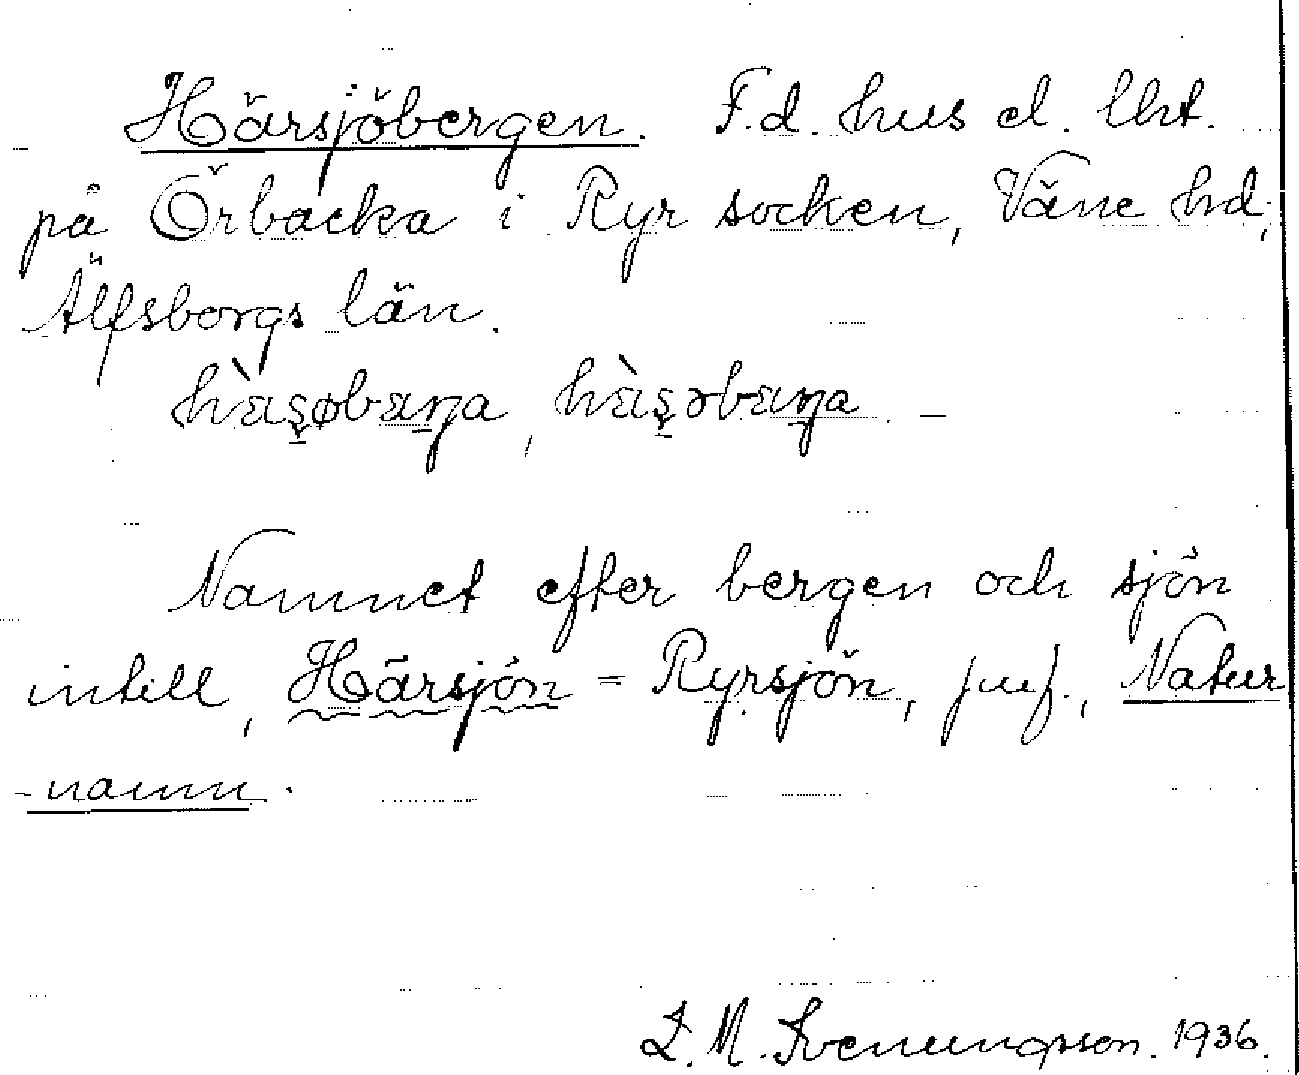 Härsjöbergen. F.d. hus el. lht.
på Örbacka i Ryr socken, Väne hd,
Älfsborgs län.
Namnet efter bergen och sjön
intill, Härsjön = Ryrsjön, jmf., Natur
-namn.
L. M. Svenungsson. 1936.